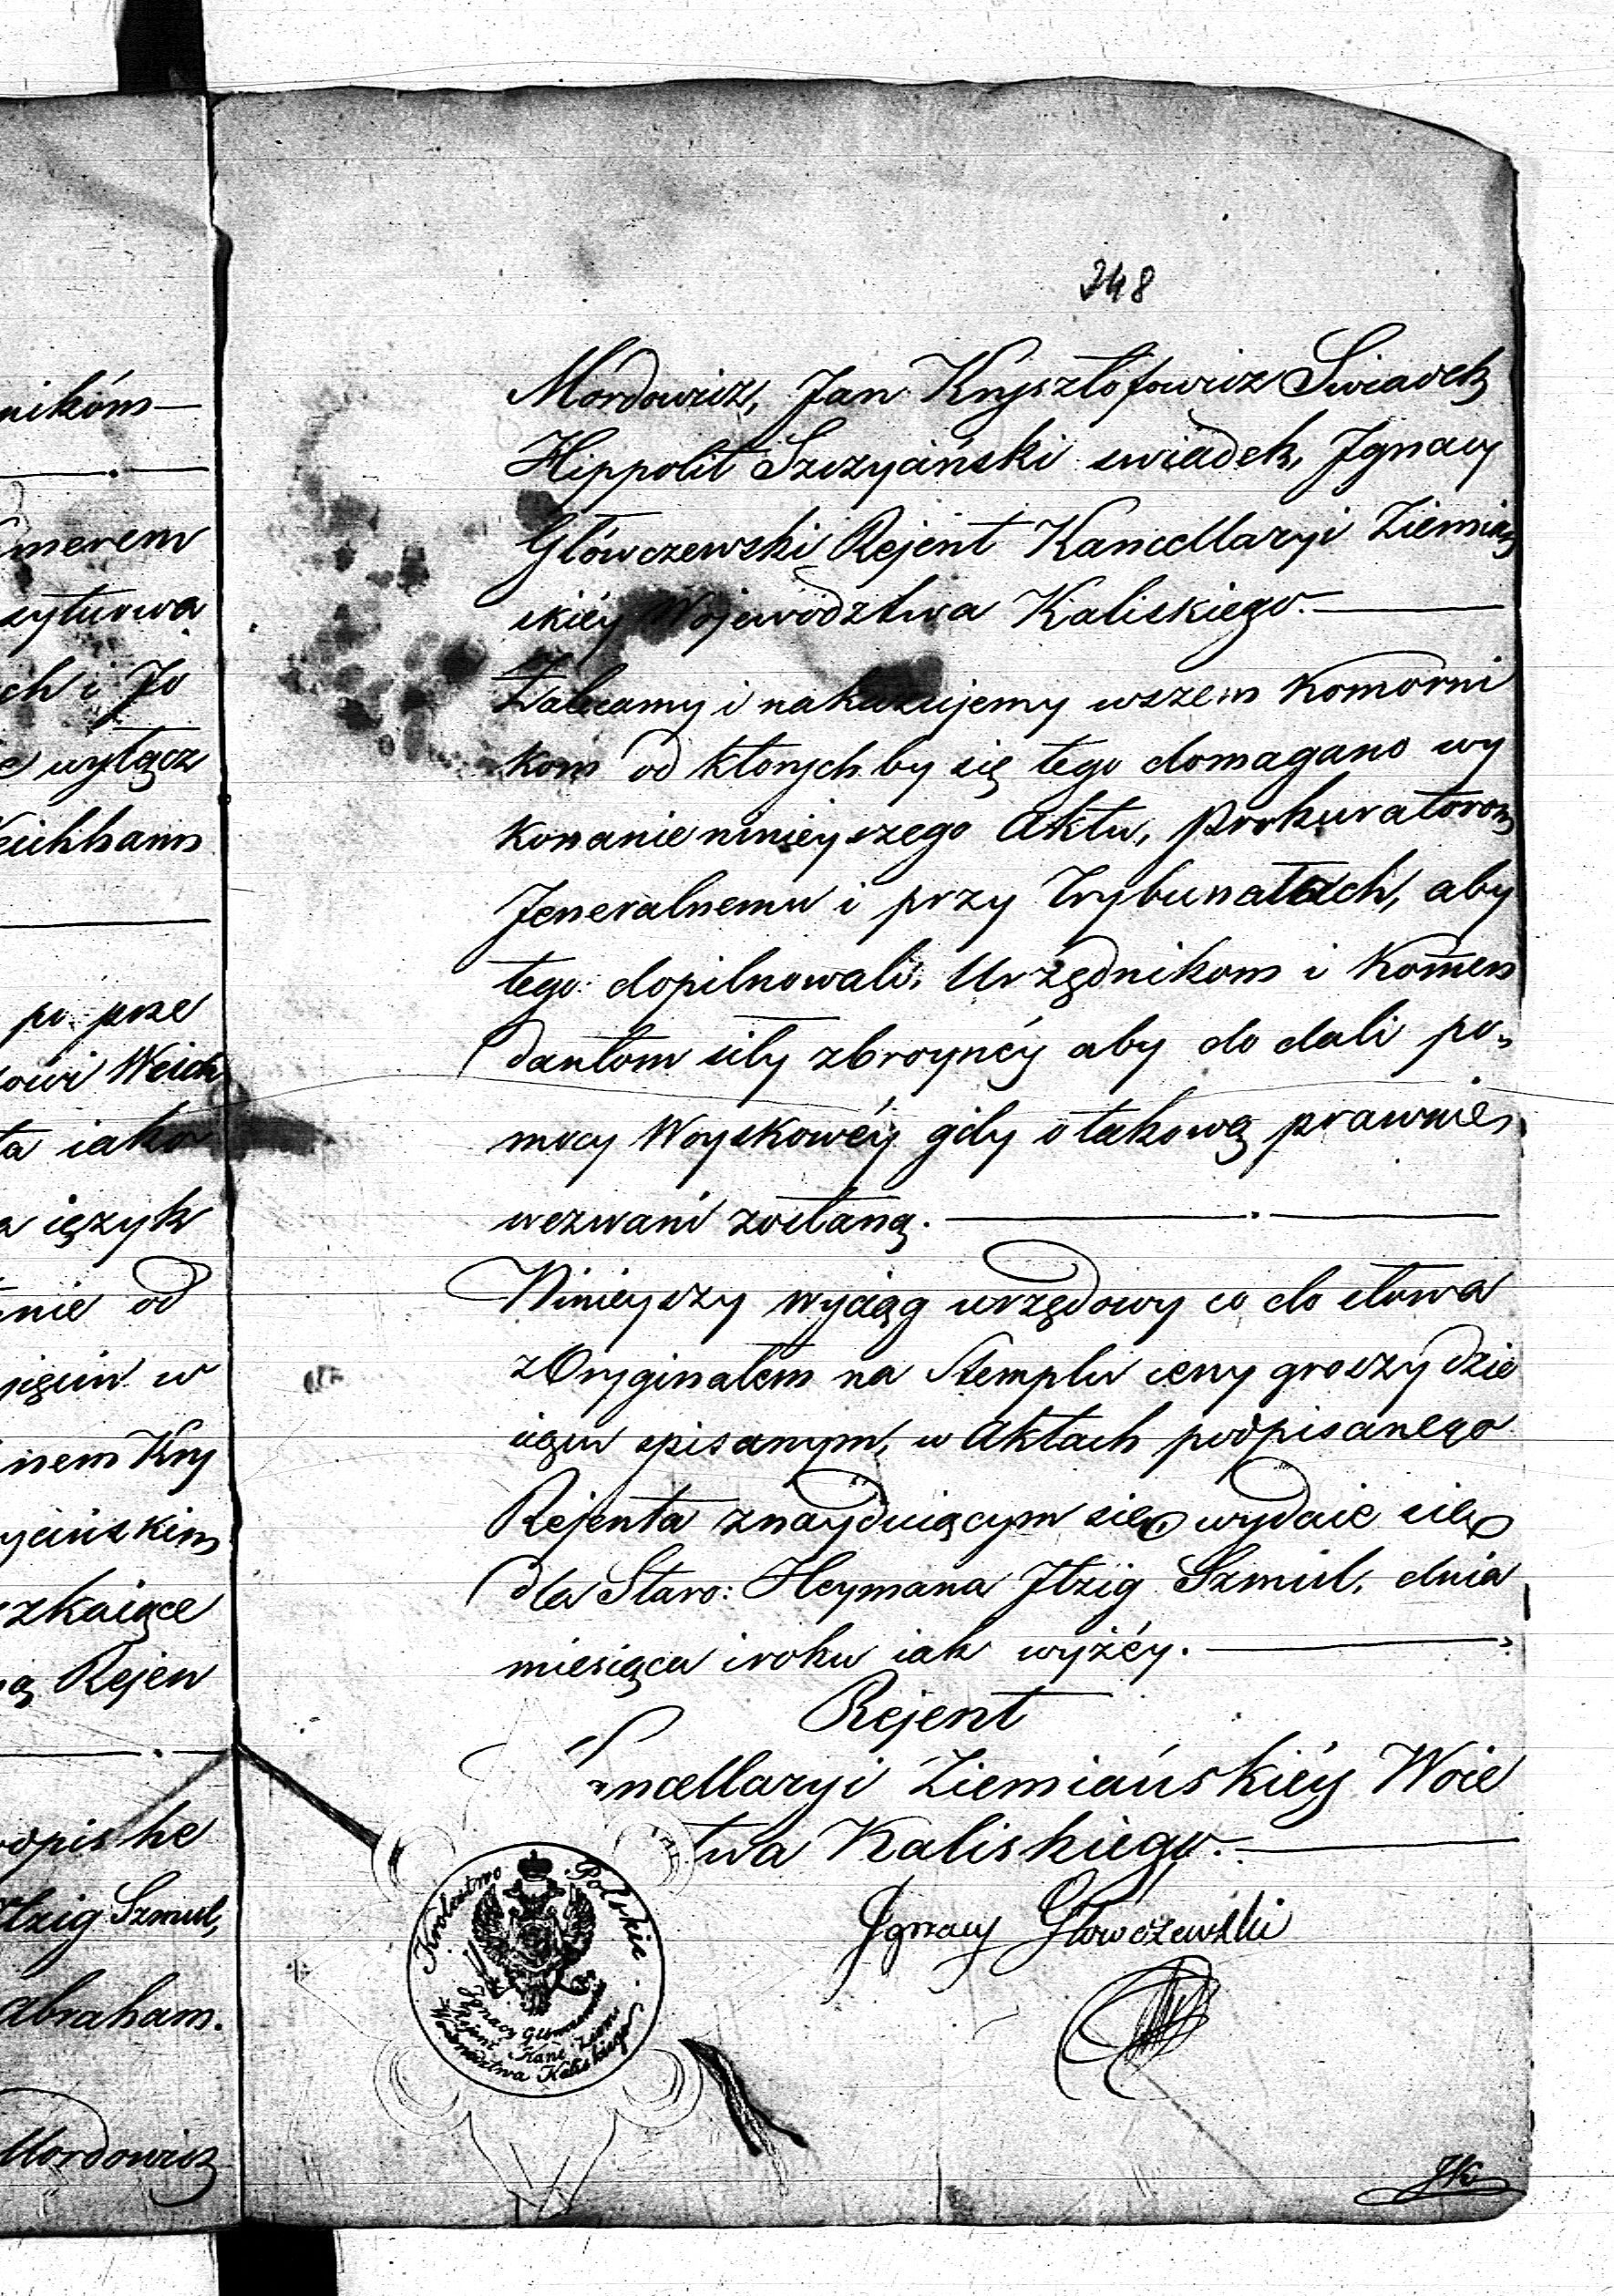 nikóm
merem
sytuowa
ch i Jo
e wyłącz
Weichhann
po prze
owi Weich
ta iako
a ięzyk
nie od
ięciu w
nem Kry
ycińskim
szkaiące
ą Rejen
odpis he
Itzig Szmul,
Abraham.
Mordowicz
248
Mordowicz, Jan Krysztofowicz Swiadek
Hippolit Szczyciński swiadek, Ignacy
Główczewski Rejent Kancellaryi Ziemiań
skiéy Wojewodztwa Kaliskiego.
Zalecamy i nakazujemy wszem Komorni
kom od ktorych by się tego domagano wy
konanie ninieyszego Aktu, Prokuratorom
Jeneralnemu i przy Trybunałach, aby
tego dopilnowali, Urzędnikom i Kommen
dantom siły zbroynéy aby do dali po„
mocy Woyskowéy gdy o takową prawnie
wezwani zostaną.
Ninieyszy wyciąg urzędowy co do słowa
z Oryginałem na Stemplu ceny groszy dzie
sięciu spisanym, w Aktach podpisanego
Rejenta znayduiącym się, wydaie się
dla Staro: Heymana Itzig Szmul, dnia
miesiąca i roku iak wyżéy.
Rejent
ncellaryi Ziemiańskiéy Woie
twa Kaliskiego.
Ignacy Główczewski
Królestwo Polskie
Ignacy
Rejent Kanc. Ziem.
Woiewodztwa Kaliskiego
JK